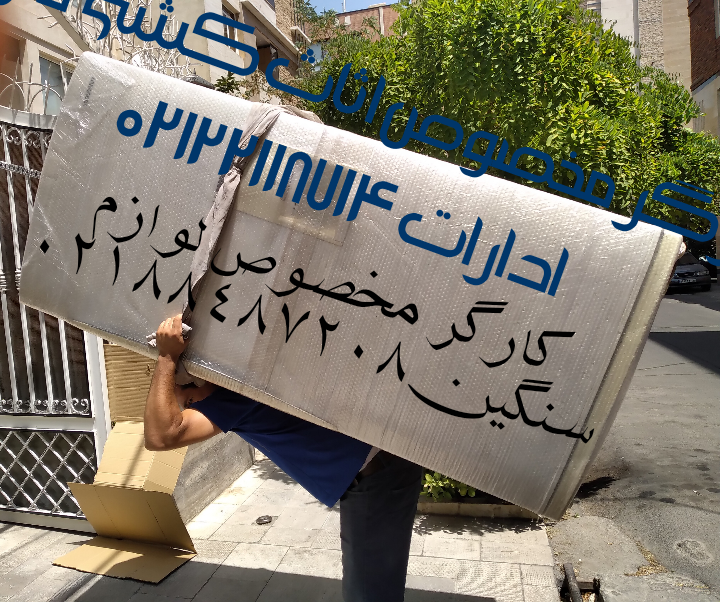 گر مخصوص اثاث کشی
ادارات ۰۲۱۲۲۱۱۸۷۱۴
کارگر مخصوص لوازم
سنگین۰۲۱۸۸٤۸۷۲۰۸